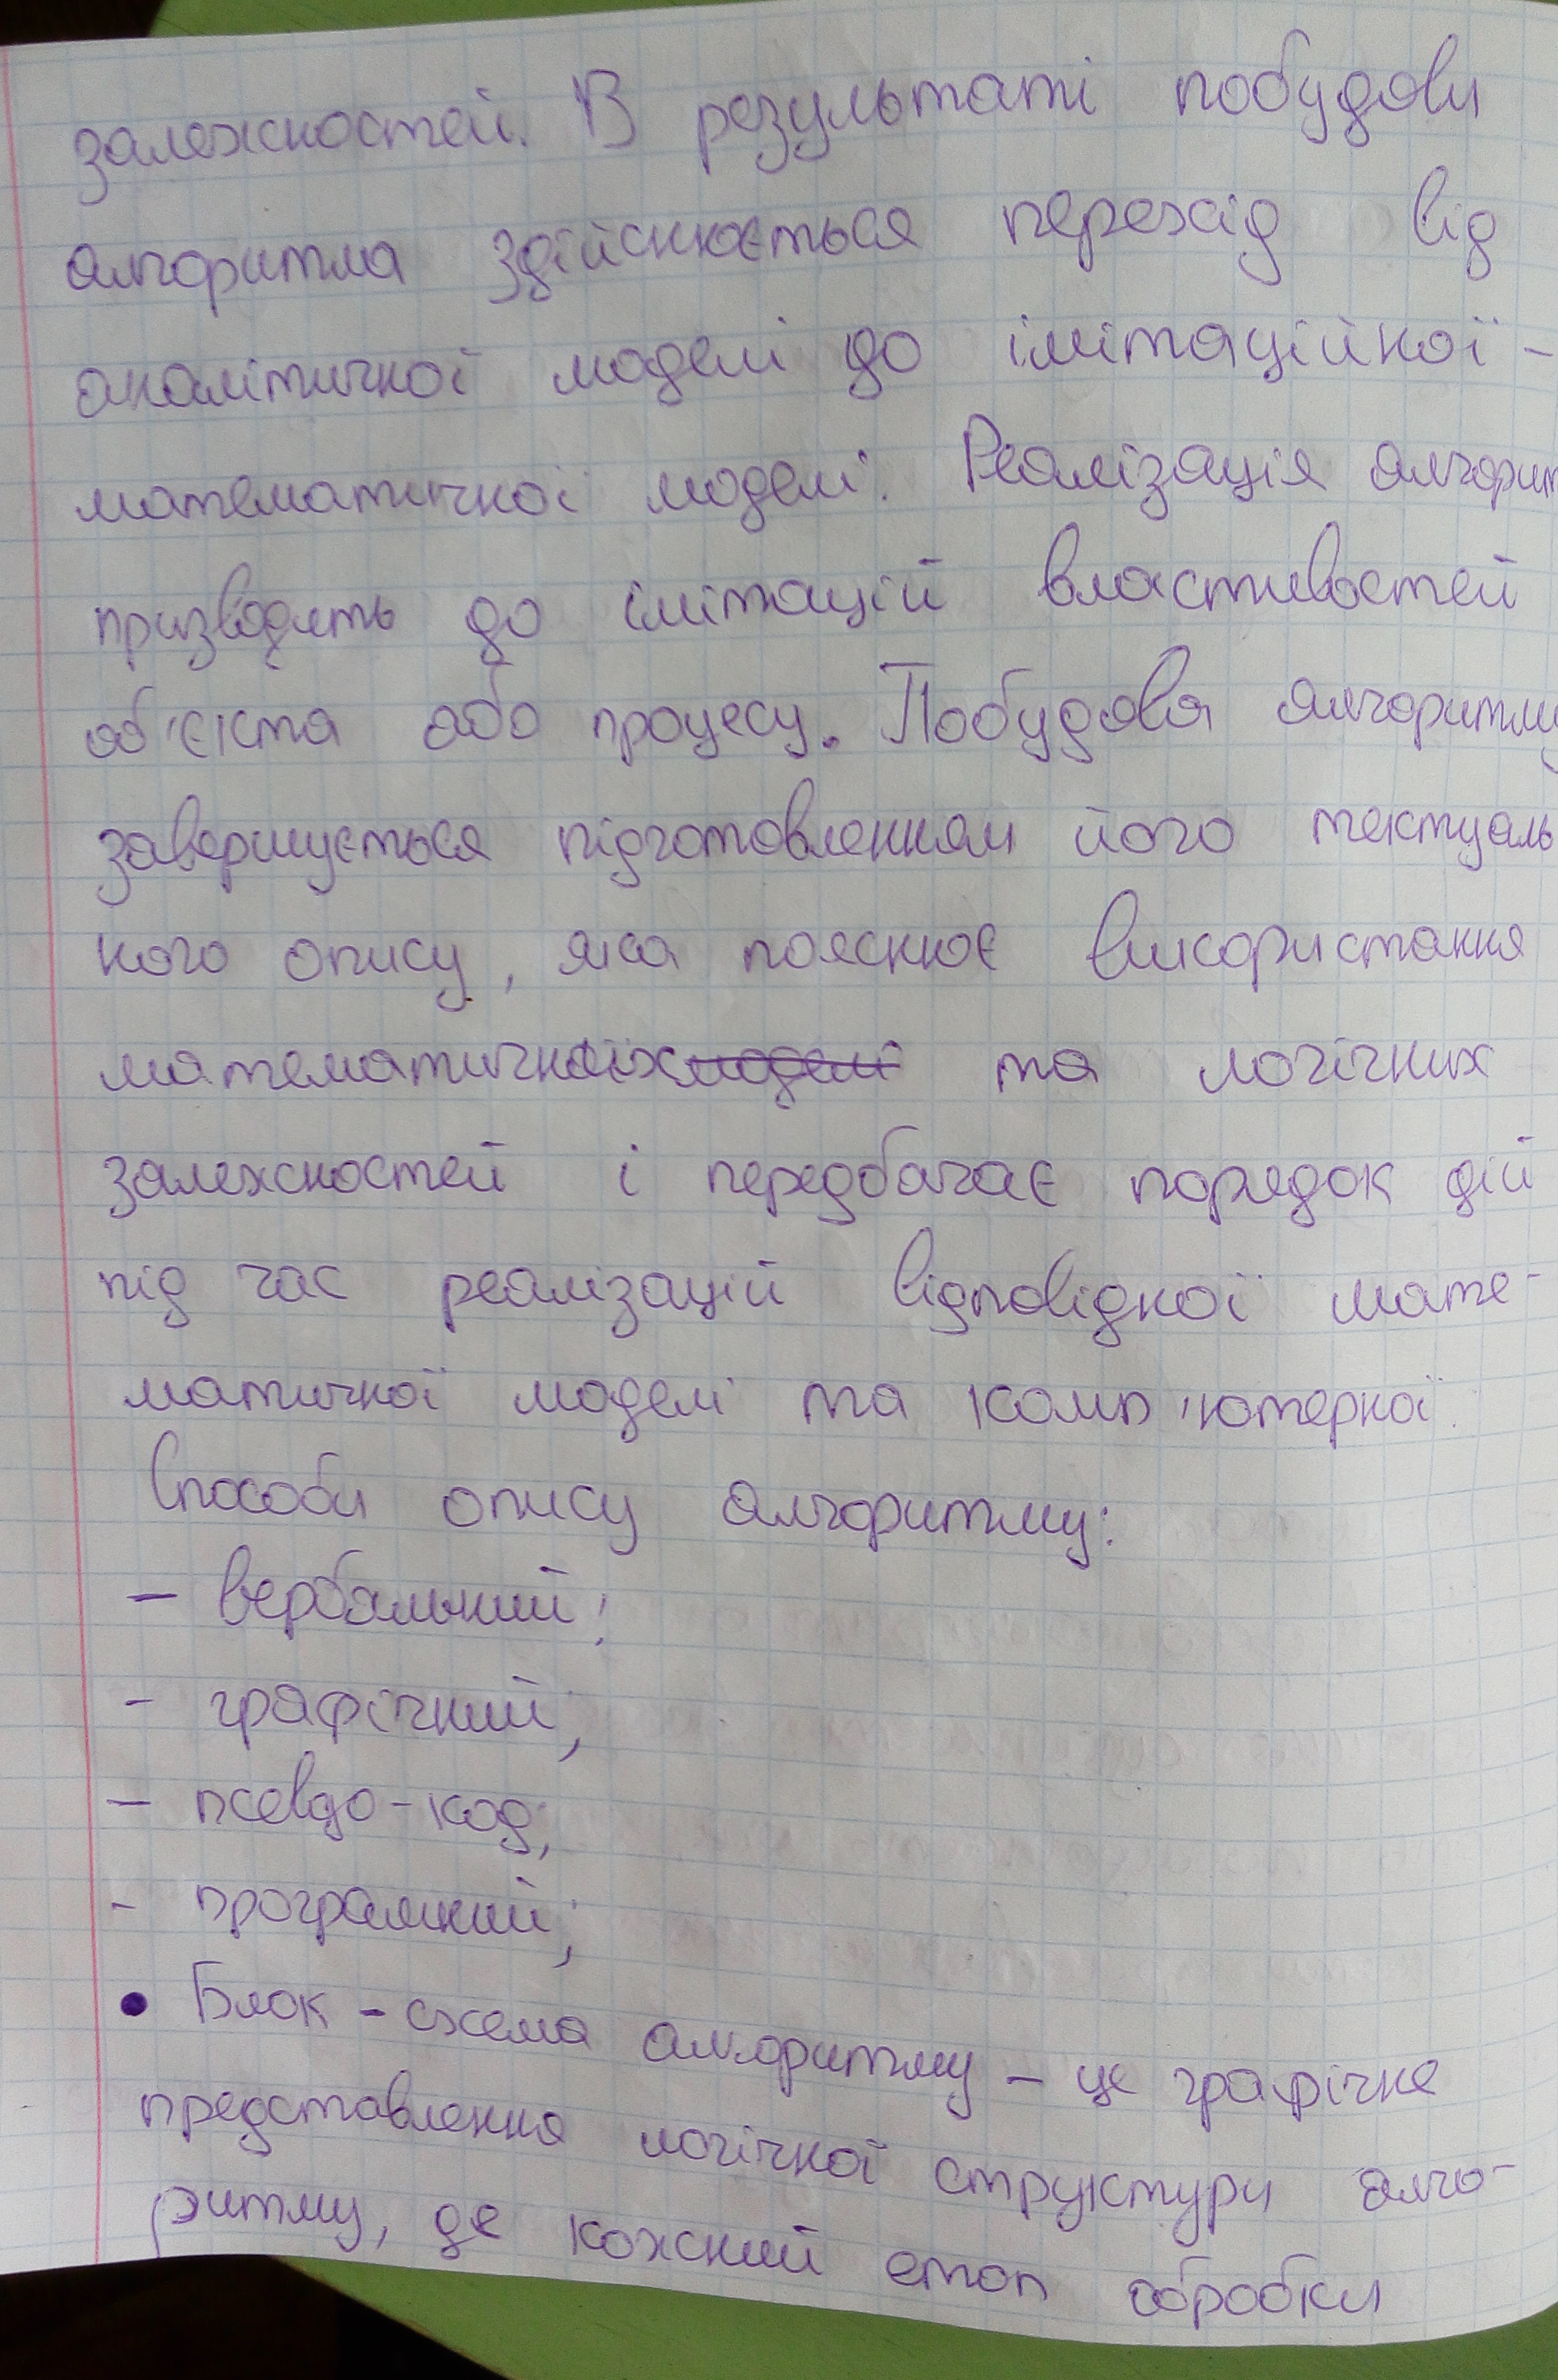 залежностей. В результаті побудови
алгоритма здійснюється перехід від
аналітичної моделі до імітаційної -
математичної моделі. Реалізація алгорит
призводить до імітацій властивостей
об'єкта або процесу. Побудова алгоритму
завершується підготовленням його текстуаль
ного опису, яка пояснює використання
математичних моделі та логічних
залежностей і передбачає порядок дій
під час реалізацій відповідної мате-
матичної моделі та комп'ютерної.
Способи опису алгоритму:
- вербальний;
- графічний;
- псевдо-код;
- програмний;
• Блок - схема алгоритму - це графічне
представлення логічної структури алго-
ритму, де кожний етап обробки